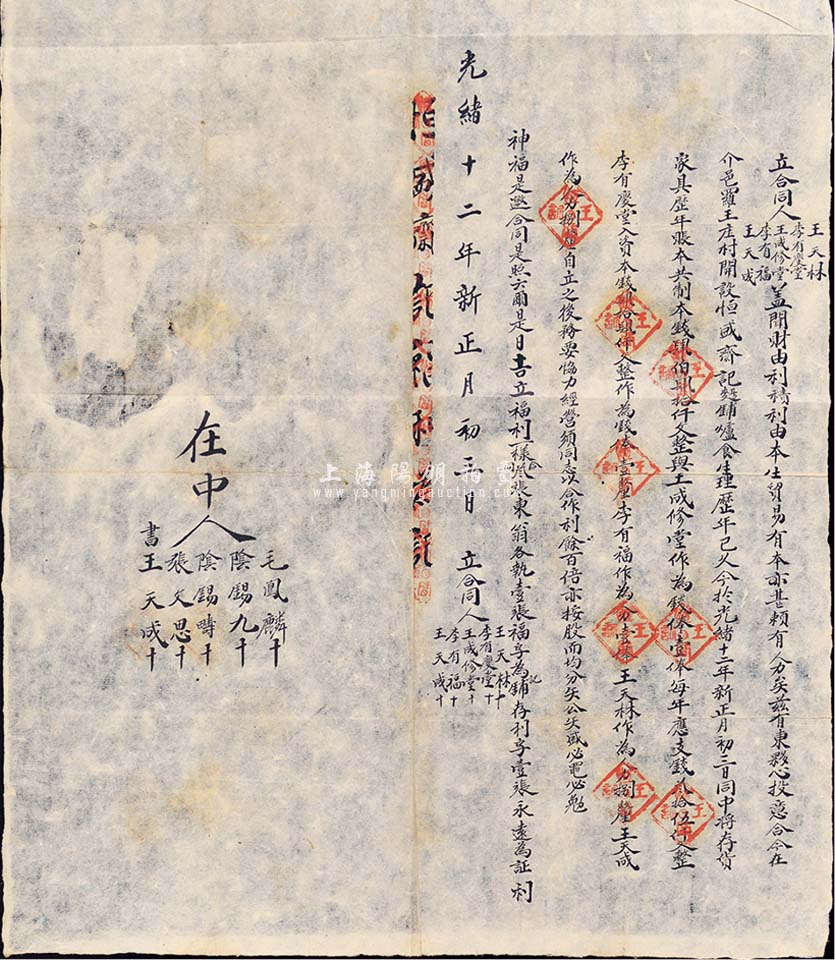 立合同人 王天林 李有慶堂 王成修堂 李有福 王天成 蓋聞財由利積利由本生貿易有本亦甚賴有人力矣茲有東夥心投意合今在
介邑羅王庄村開設恒盛齋記麪鋪爐食生理歷年已久今於光緒十二年新正月初三日同中将存貨
家具歷年賬本共制本錢肆伯貳拾仟文整與王成修堂作為錢俸壹俸每年應支錢貳拾伍仟文整
李有慶堂入資本錢拾仟文整作為錢俸壹釐李有福作為人力壹俸王天林作為人力捌釐王天成
作為人力捌釐自立之後務要恊力經營須同志以合作利餘百倍亦按股而均分矢公矢慎必電必勉
神福是興合同是照六爾是日吉立福利一樣張東翁各執壹張福字為鋪存利字壹張永遠為証 利
光緒十二年新正月初三日 立合同人 王天林十 李有慶堂十 王成修堂十 李有福十 王天成十
恒盛齋
在中人 毛鳳麟十 陰錫九十 陰錫疇十 張文思十
書 王天成十
上海陽明拍賣
www.yangmingauction.com